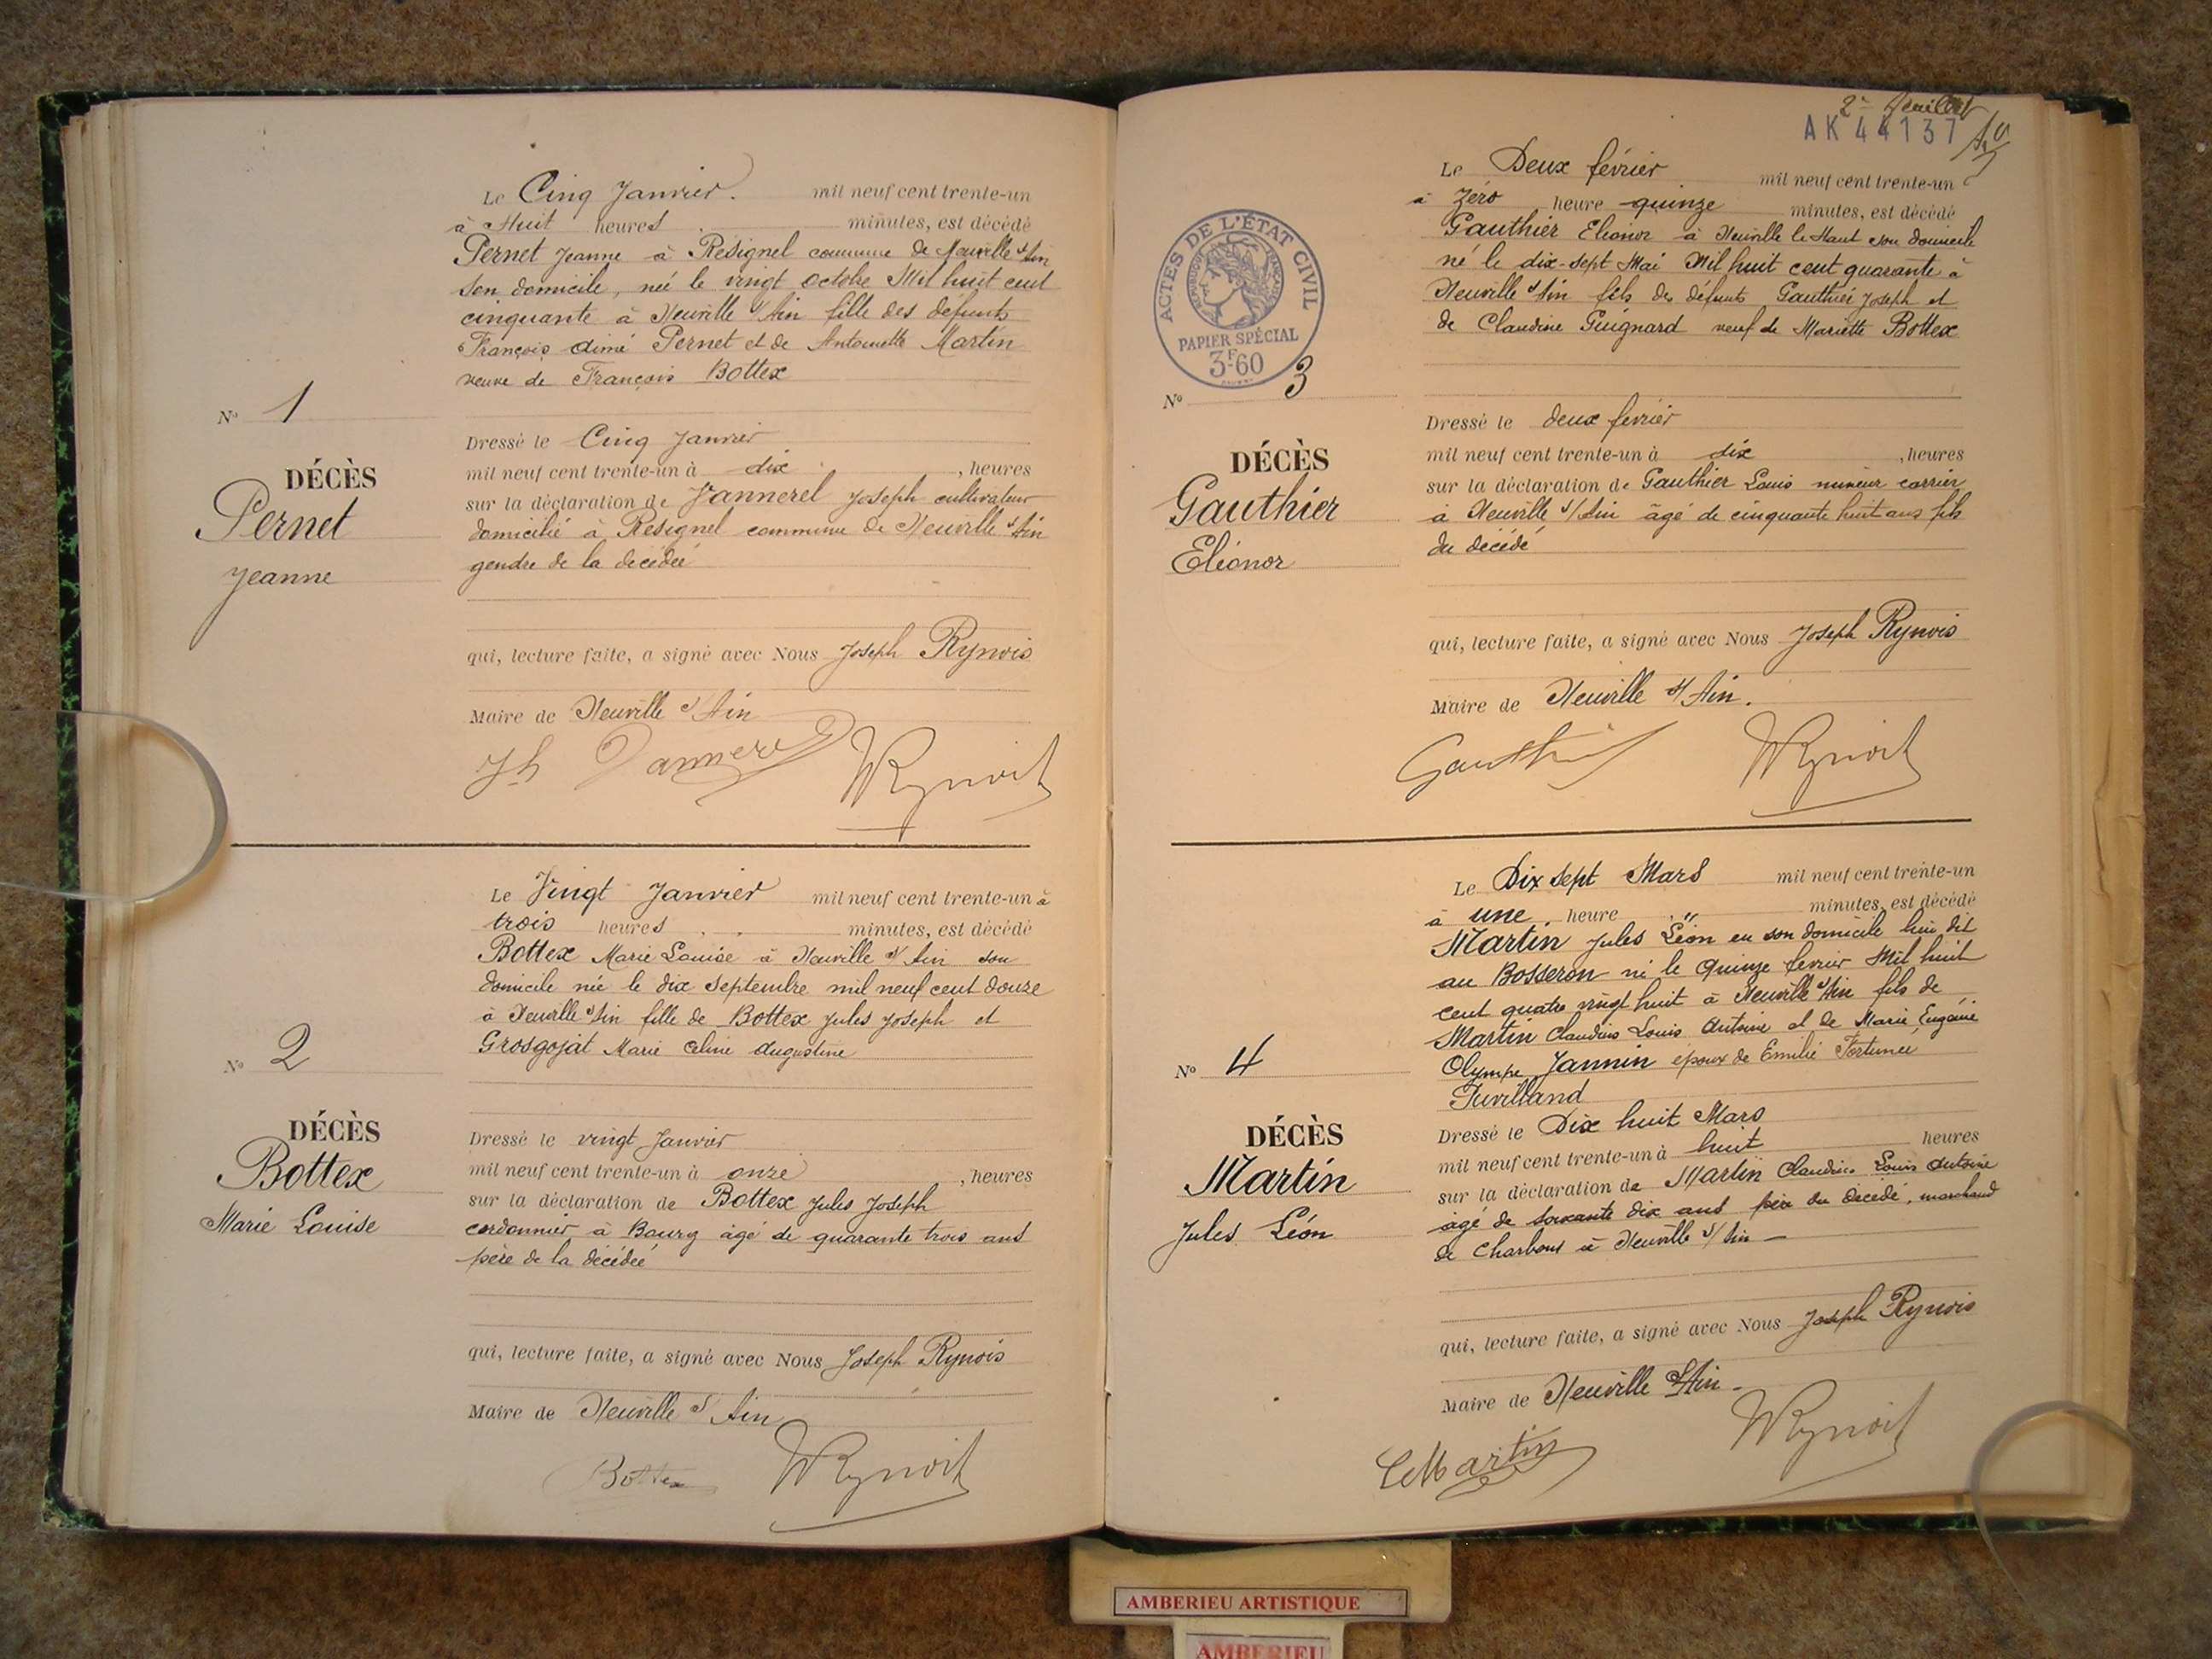 Le Cinq Janvier. mil neuf cent trente-un
à Huit heures minutes, est décédé
Pernet Jeanne à Résignel commune de Neuville s/Ain
son domicile, née le vingt octobre Mil huit cent
cinquante à Neuville s/Ain fille des défunts
François Aimé Pernet et de Antoinette Martin
veuve de François Bottex
N° 1
DÉCÈS
Pernet
Jeanne
Dressé le Cinq Janvier
mil neuf cent trente-un à dix , heures
sur la déclaration de Vannerel Joseph cultivateur
domicilié à Résignel commune de Neuville s/Ain
gendre de la décédée
qui, lecture faite, a signé avec Nous Joseph Rynois
Maire de Neuville s/Ain
Jh Vannerel Rynois
Le Vingt Janvier mil neuf cent trente-un à
trois heures minutes, est décédé
Bottex Marie Louise à Neuville s/Ain son
domicile née le dix Septembre mil neuf cent douze
à Neuville s/Ain fille de Bottex Jules Joseph et
Grosgojat Marie Céline Augustine
N° 2
DÉCÈS
Bottex
Marie Louise
Dressé le vingt Janvier
mil neuf cent trente-un à onze , heures
sur la déclaration de Bottex Jules Joseph
cordonnier à Bourg âgé de quarante trois ans
père de la décédée
qui, lecture faite, a signé avec Nous Joseph Rynois
Maire de Neuville s/Ain
Bottex Rynois
2e feuillet
AK 44137
Le Deux février mil neuf cent trente-un
à Zéro heure quinze minutes, est décédé
Gauthier Eliónor à Neuville le Haut son domicile
né le dix-sept Mai Mil huit cent quarante à
Neuville s/Ain fils des défunts Gauthier Joseph et
de Claudine Guignard veuf de Mariette Bottex
ACTES DE L'ÉTAT CIVIL
RÉPUBLIQUE FRANÇAISE
PAPIER SPÉCIAL
3F60
N° 3
DÉCÈS
Gauthier
Eliónor
Dressé le deux février
mil neuf cent trente-un à dix , heures
sur la déclaration de Gauthier Louis mineur carrier
à Neuville s/Ain âgé de cinquante huit ans fils
du décédé
qui, lecture faite, a signé avec Nous Joseph Rynois
Maire de Neuville s/Ain.
Gauthier Rynois
Le Dix sept Mars mil neuf cent trente-un
à une heure " minutes, est décédé
Martin Jules Léon en son domicile lieu dit
au Bosseron né le Quinze février Mil huit
cent quatre vingt huit à Neuville s/Ain fils de
Martin Claudius Louis Antoine et de Marie Eugénie
Olympe Jannin époux de Emilie Fortunée
Juvilland
N° 4
DÉCÈS
Martin
Jules Léon
Dressé le Dix huit Mars
mil neuf cent trente-un à huit heures
sur la déclaration de Martin Claudius Louis Antoine
âgé de soixante dix ans père du décédé, marchand
de Charbons à Neuville s/Ain -
qui, lecture faite, a signé avec Nous Joseph Rynois
Maire de Neuville s/Ain -
Martin Rynois
AMBERIEU ARTISTIQUE
AMBERIEU